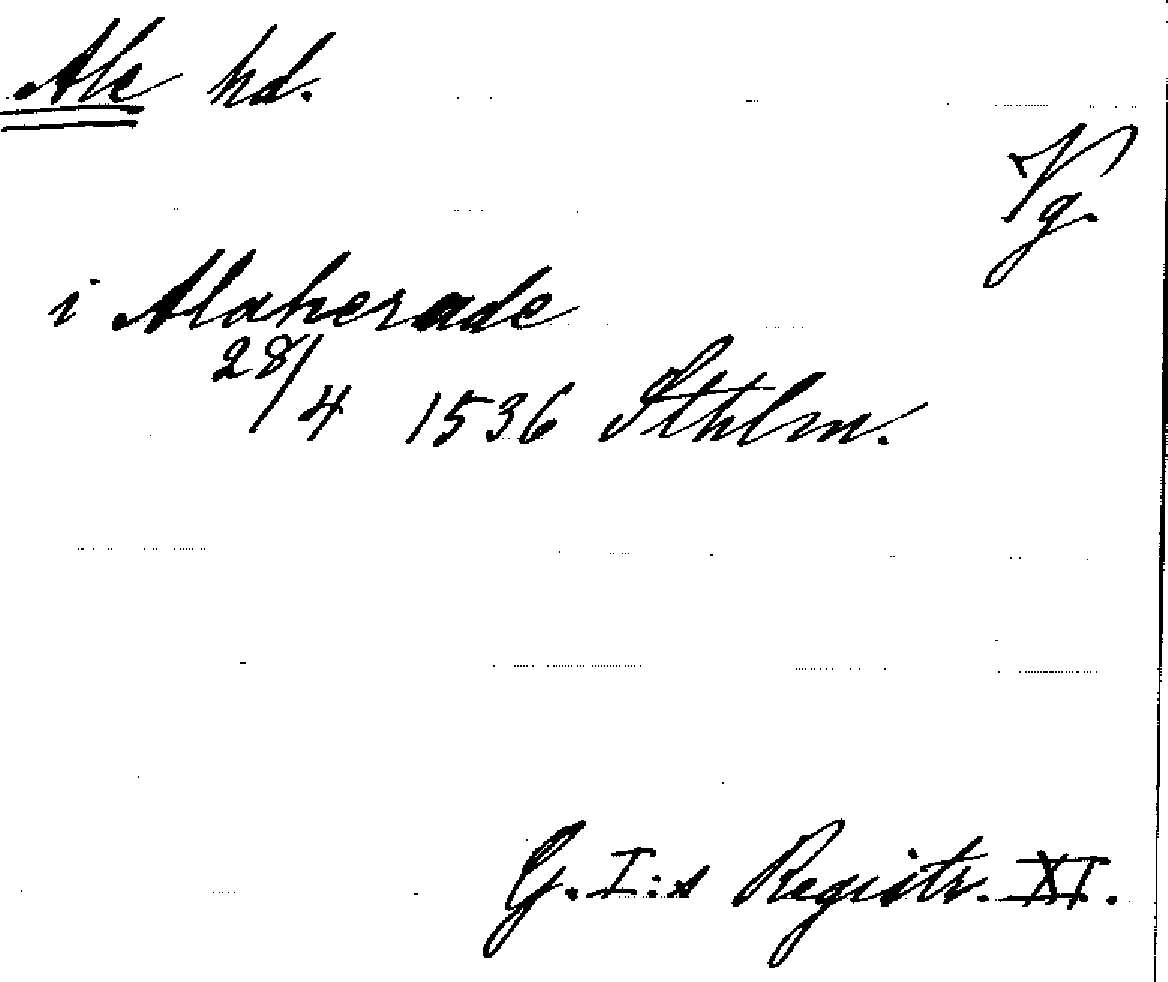 Ale hd.
Vg.
i Alaherade
28/4 1536 Sthlm.
G. I:s Registr. XI.